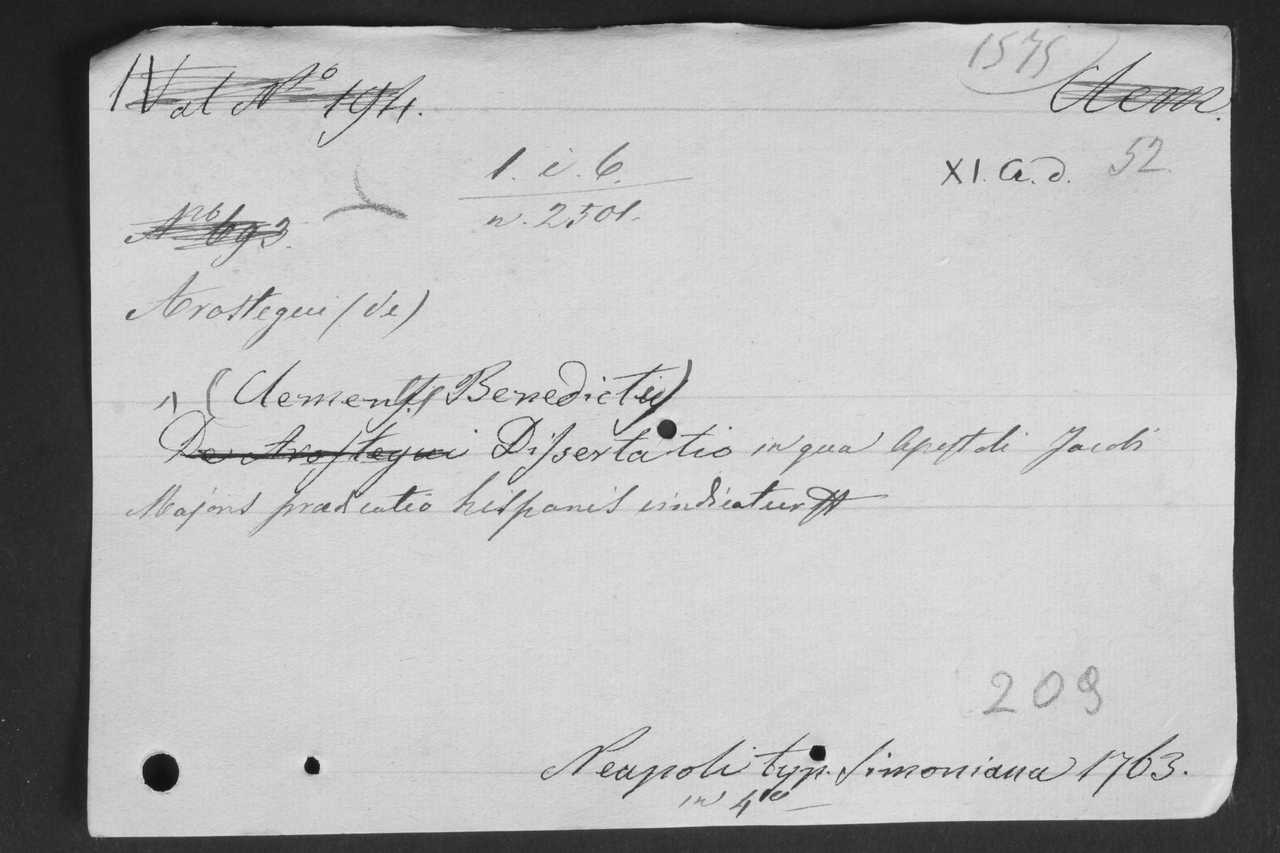 1575
IVal Nº 194. Clem.
1. i. 6. XI. a. d. 52
n. 2501.
Nº 693.
Arostegui (de)
1 (Clementis Benedicti)
De Arostegui Dissertatio in qua Apostoli Jacobi
Majoris praedicatio hispanis vindicatur
209
Neapoli typ. Simoniana 1763.
in 4to